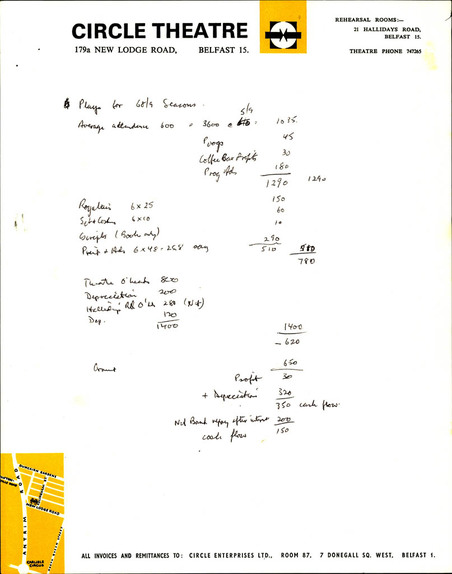 CIRCLE THEATRE
179a NEW LODGE ROAD, BELFAST 15.
REHEARSAL ROOMS:—
21 HALLIDAYS ROAD,
BELFAST 15.
THEATRE PHONE 747265
6 Plays for 68/9 Seasons.
5/9
Average attendance 600 = 3600 @ = 1035
Progs 45
Coffee Bar Profits 30
Prog Ads 180
1290 1290
Royalties 6 x 25 150
Set & Costs 6 x 10 60
Scripts (Books only) 10
Print + Ads 6 x 48 = 288 say 290
510 510
780
Theatre O'heads 800
Depreciation 200
Hallidays Rd O'hds 280 (Net)
Dep. 120
1400 1400
- 620
Grant 650
Profit 30
+ Depreciation 320
350 cash flow
Net Bank repay after interest 200
cash flow 150
NEW LODGE ROAD
CARLISLE
CIRCUS
ALL INVOICES AND REMITTANCES TO: CIRCLE ENTERPRISES LTD., ROOM 87, 7 DONEGALL SQ. WEST, BELFAST 1.